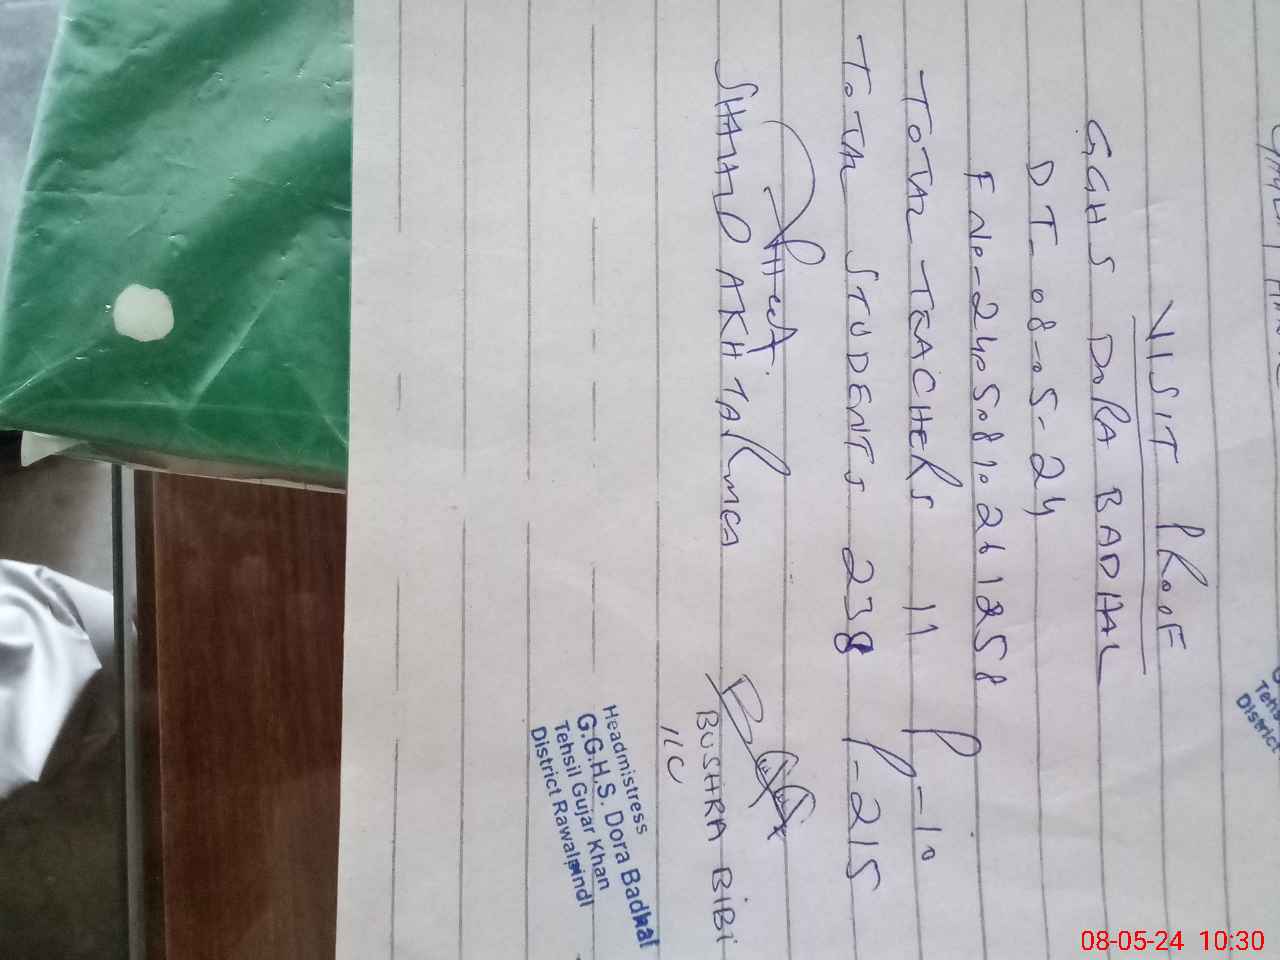 VISIT PROOF
GGHS DORA BADHAL
DT_08-05-24
F NO-24050810261258
TOTAL TEACHERS 11 P-10
TOTAL STUDENTS 238 P-215
SHAHZD AKHTAR MEA
BUSHRA BIBI
I/C
Headmistress
G.G.H.S. Dora Badhal
Tehsil Gujar Khan
District Rawalpindi
Tehsil
District
08-05-24 10:30